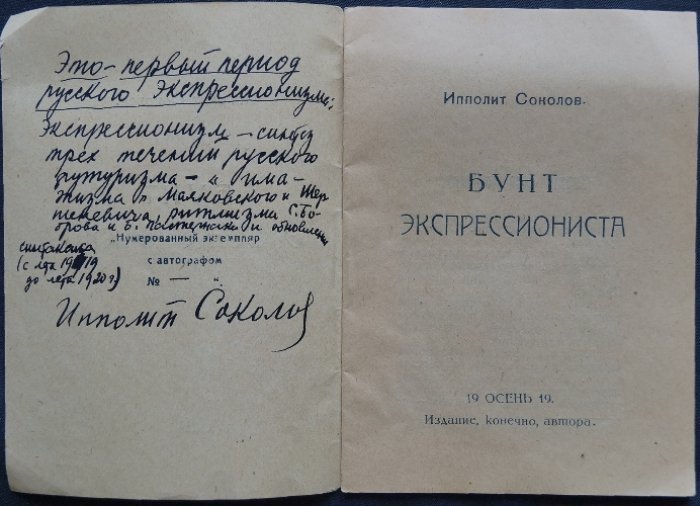 Это – первый период
русского Экспрессионизма:
Экспрессионизм – синтез
трех течений русского
футуризма – " има-
жизма В. Маяковского и Шер-
шеневича, ритмизма С. Бо-
брова и Б. Пастернака и обновления
синтаксиса
„Нумерованный экземпляр
(с лета 1919
с автографом
до лета 1920 г.)
№ — "
Ипполит Соколов
Ипполит Соколов.
БУНТ
ЭКСПРЕССИОНИСТА
19 ОСЕНЬ 19.
Издание, конечно, автора.